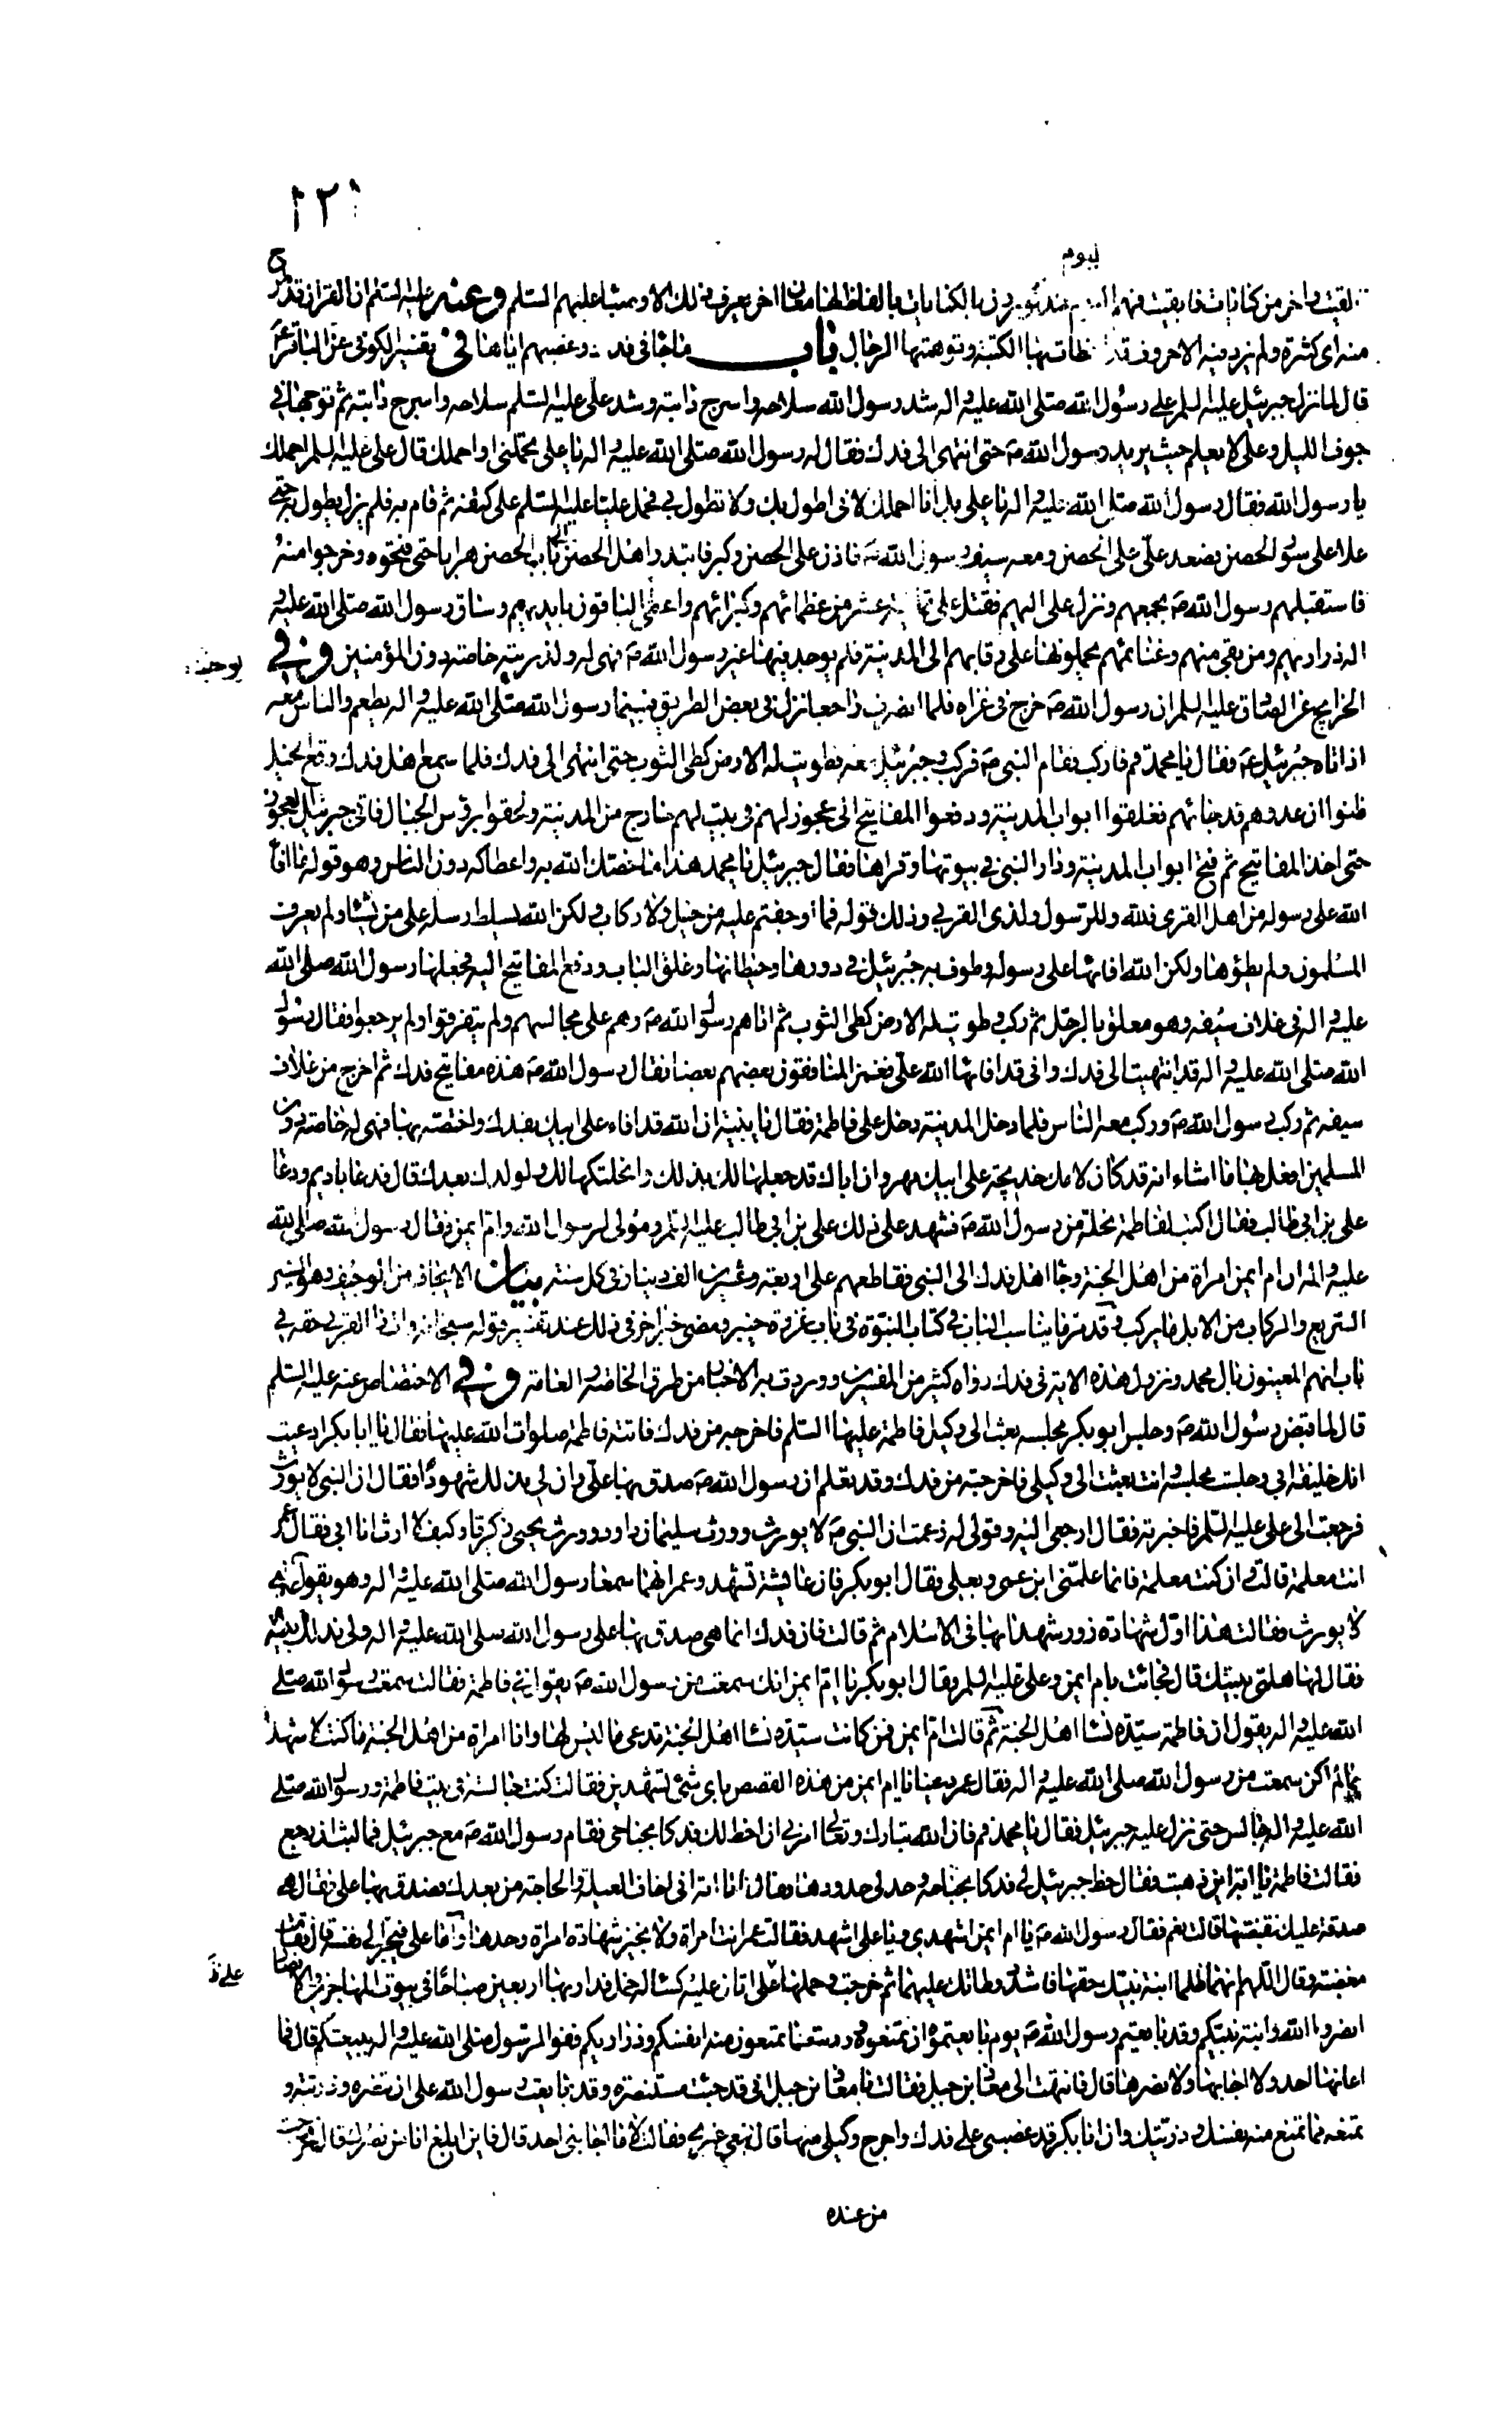 ١٢١
ليوم
لقيت واخر من كنايات فما بقيت فيهم بالكنايات بالفاظ لها معان اخر يعرف ذلك الاوصيا عليهم السلم وعنه عليه السلم ان القران قد طرح
منه اى كثيرة ولم يزد فيه الا حروف قد اخطات بها الكتبة وتوهمتها الرجال باب ما جا فى فدك وغصبهم اياها فى تفسير الكوفى عن الباقر ع
قال لما نزل جبرئيل عليه السلم على رسول الله صلى الله عليه واله شد رسول الله سلاحه واسرج دابته وشد على عليه السلم سلاحه واسرج دابته ثم توجها فى
جوف الليل وعلى لا يعلم حيث يريد رسول الله ص حتى انتهى الى فدك فقال له رسول الله صلى الله عليه واله يا على تحملنى او احملك قال على عليه السلم احملك
يا رسول الله فقال رسول الله صلى الله عليه واله يا على بل انا احملك لانى اطول بك ولا تطول بى فحمل عليا عليه السلم على كتفه ثم قام به فلم يزل يطول به حتى
علا على سور الحصن فصعد على على الحصن ومعه سيف رسول الله ص فاذن على الحصن وكبر فابتدر اهل الحصن الى باب الحصن هرابا حتى فتحوه وخرجوا منه
فاستقبلهم رسول الله ص بجمعهم ونزل على اليهم فقتل على ثمانية عشر من عظمائهم وكبرائهم واعطى الباقون بايديهم وساق رسول الله صلى الله عليه و
اله ذراريهم ومن بقى منهم وغنائمهم يحملونها على رقابهم الى المدينة فلم يوجف فيها غير رسول الله ص فهى له ولذريته خاصة دون المؤمنين وفى
يوجف
الخرايج عن الصادق عليه السلم ان رسول الله ص خرج فى غزاه فلما انصرف راجعا نزل فى بعض الطريق فبينما رسول الله صلى الله عليه واله يطعم والناس معه
اذ اتاه جبرئيل ع فقال يا محمد قم فاركب فقام النبى ص فركب وجبرئيل معه فطويت له الارض كطى الثوب حتى انتهى الى فدك فلما سمع اهل فدك وقع الخيل
ظنوا ان عدوهم قد جائهم فغلقوا ابواب المدينة ودفعوا المفاتيح الى عجوز لهم فى بيت لهم خارج من المدينة ولحقوا برؤس الجبال فاتى جبرئيل العجوز
حتى اخذ المفاتيح ثم فتح ابواب المدينة ودار النبى فى بيوتها وقراها فقال جبرئيل يا محمد هذا ما خصك الله به واعطاكه دون الناس وهو قوله ما افاء
الله على رسوله من اهل القرى فلله وللرسول ولذى القربى وذلك قوله فما اوجفتم عليه من خيل ولا ركاب ولكن الله يسلط رسله على من يشاء ولم يعرف
المسلمون ولم يطؤها ولكن الله افائها على رسوله وطوف به جبرئيل فى دورها وحيطانها وغلق الباب ودفع المفاتيح اليه فجعلها رسول الله صلى الله
عليه واله فى غلاف سيفه وهو معلق بالرحل ثم ركب وطويت له الارض كطى الثوب ثم اتاهم رسول الله ص وهم على مجالسهم ولم يتفرقوا ولم يرجعوا فقال رسول
الله صلى الله عليه واله قد انتهيت الى فدك وانى قد افائها الله على فغمز المنافقون بعضهم بعضا فقال رسول الله ص هذه مفاتيح فدك ثم اخرج من غلاف
سيفه ثم ركب رسول الله ص وركب معه الناس فلما دخل المدينة دخل على فاطمة فقال يا بنية ان الله قد افاء على ابيك بفدك واختصه بها فهى له خاصة دون
المسلمين افعل بها ما اشاء انه قد كان لامك خديجة على ابيك مهر وان اباك قد جعلها لك بذلك وانحلتكها لك ولولدك بعدك قال فدعا باديم ودعا
على بن ابى طالب فقال اكتب لفاطمة بفدك نحلة من رسول الله ص فشهد على ذلك على بن ابى طالب عليه السلم ومولى لرسول الله وام ايمن فقال رسول الله صلى الله
عليه واله ان ام ايمن امراة من اهل الجنة وجا اهل فدك الى النبى فقاطعهم على اربعة وعشرين الف دينار فى كل سنة بيان الايجاف من الوجيف وهو السير
السريع والركاب من الابل ما يركب وقد مر ما يناسب الباب فى كتاب النبوة فى باب غزوة خيبر ومضى خبر اخر فى ذلك عند تفسير قوله سبحانه وات ذا القربى حقه فى
باب انهم المعنيون بال محمد ونزول هذه الاية فى فدك رواه كثير من المفسرين ووردت به الاخبار من طرق الخاصة والعامة وفى الاختصاص عنه عليه السلم
قال لما قبض رسول الله ص وجلس ابوبكر مجلسه بعث الى وكيل فاطمة عليها السلم فاخرجه من فدك فاتته فاطمة صلوات الله عليها فقالت يا ابا بكر ادعيت
انك خليفة ابى وجلست مجلسه وانت بعثت الى وكيلى فاخرجته من فدك وقد تعلم ان رسول الله ص صدق بها على وان لى بذلك شهودا فقال ان النبى لا يورث
فرجعت الى على عليه السلم فاخبرته فقال ارجعى اليه وقولى له زعمت ان النبى ص لا يورث وورث سليمان داود وورث يحيى زكريا وكيف لا ارث انا ابى فقال عمر
انت معلمة قالت وان كنت معلمة فانما علمنى ابن عمى وبعلى فقال ابوبكر فان عايشة تشهد وعمر انهما سمعا رسول الله صلى الله عليه واله وهو يقول النبى
لا يورث فقالت هذا اول شهادة زور شهدا بها فى الاسلام ثم قالت فان فدك انما هى صدق بها على رسول الله صلى الله عليه واله ولى بذلك بينة
فقال لها هلمى ببينتك قال فجائت بام ايمن وعلى عليه السلم فقال ابوبكر يا ام ايمن انك سمعت من رسول الله ص يقول فى فاطمة فقالت سمعت رسول الله صلى
الله عليه واله يقول ان فاطمة سيدة نسا اهل الجنة ثم قالت ام ايمن فمن كانت سيدة نسا اهل الجنة تدعى ما ليس لها وانا امراة من اهل الجنة ما كنت لاشهد
بما لم اكن سمعت من رسول الله صلى الله عليه واله فقال عمر دعينا يا ام ايمن من هذه القصص باى شئ تشهدين فقالت كنت جالسة فى بيت فاطمة ورسول الله صلى
الله عليه واله جالس حتى نزل عليه جبرئيل فقال يا محمد قم فان الله تبارك وتعالى امرنى ان اخط لك فدكا بجناحى فقام رسول الله ص مع جبرئيل فما لبث ان رجع
فقالت فاطمة يا ابة اين ذهبت فقال خط جبرئيل لى فدكا بجناحه وحد لى حدودها فقالت يا ابة انى اخاف العيلة والحاجة من بعدك فصدق بها على فقال هى
صدقة عليك فقبضتها قالت نعم فقال رسول الله ص يا ام ايمن اشهدى ويا على اشهد فقال عمر انت امراة ولا نجيز شهادة امراة وحدها واما على فيجر الى نفسه قال فقامت
مغضبة وقال اللهم انهما ظلما ابنة نبيك حقها فاشدد وطاتك عليهما ثم خرجت وحملها على اتان عليه كسا له خمل فدار بها اربعين صباحا فى بيوت المهاجرين والانصار
على خ
انصروا الله وابنة نبيكم وقد بايعتم رسول الله ص يوم بايعتموه ان تمنعوه وذريته مما تمنعون منه انفسكم وذراريكم ففوا لرسول الله صلى الله عليه واله ببيعتكم قال فما
اعانها احد ولا اجابها ولا نصرها قال فانتهت الى معاذ بن جبل فقالت يا معاذ بن جبل انى قد جئتك مستنصرة وقد بايعت رسول الله على ان تنصره وذريته و
تمنعه مما تمنع منه نفسك وذريتك وان ابا بكر قد غصبنى على فدك واخرج وكيلى منها قال فمعى غيرى فقالت لا ما اجابنى احد قال فاين ابلغ انا من نصرك قال فخرجت
من عنده